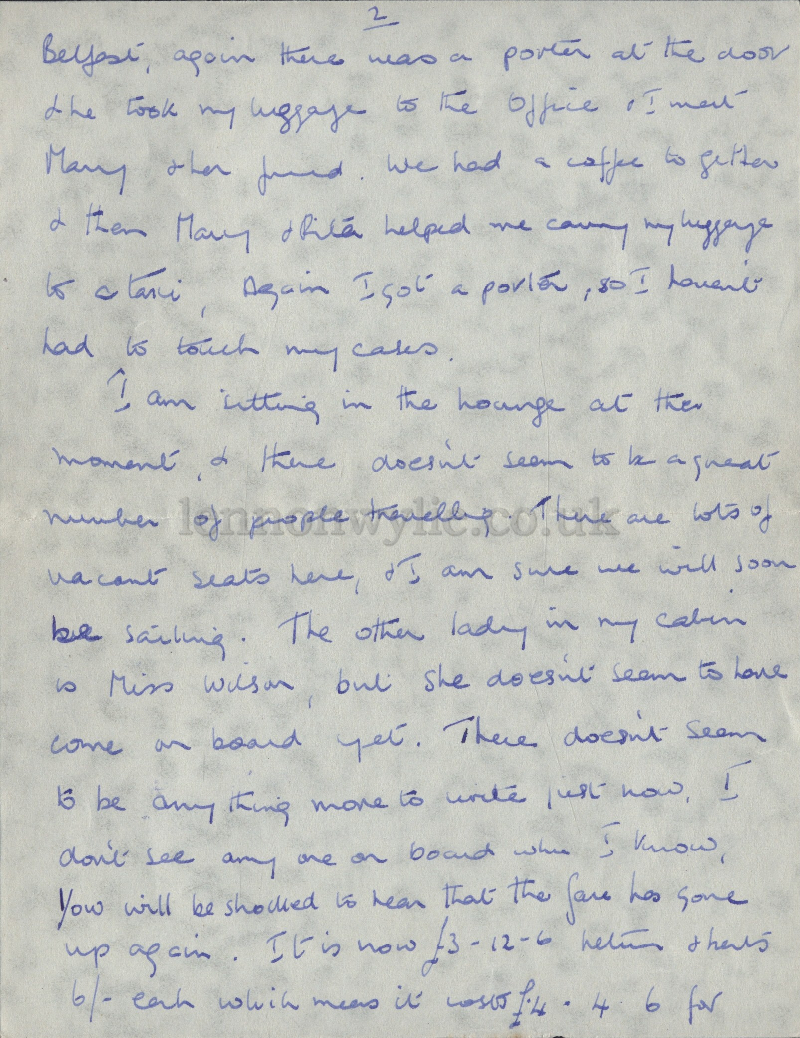 2
Belfast, again there was a porter at the door
& he took my luggage to the Office & I met
Mary & her friend. We had a coffee to gether
& then Mary & Rita helped me carry my luggage
to a taxi, Again I got a porter, so I haven't
had to touch my cases.
I am sitting in the lounge at the
moment, & there doesn't seem to be a great
number of people travelling. There are lots of
lennonwylie.co.uk
vacant seats here, & I am sure we will soon
be sailing. The other lady in my cabin
is Miss Wilson, but she doesn't seem to have
come on board yet. There doesn't seem
to be anything more to write just now. I
don't see any one on board who I know,
You will be shocked to hear that the fare has gone
up again. It is now £3-12-6 return & berths
6/- each which means it costs £4 . 4 6 for